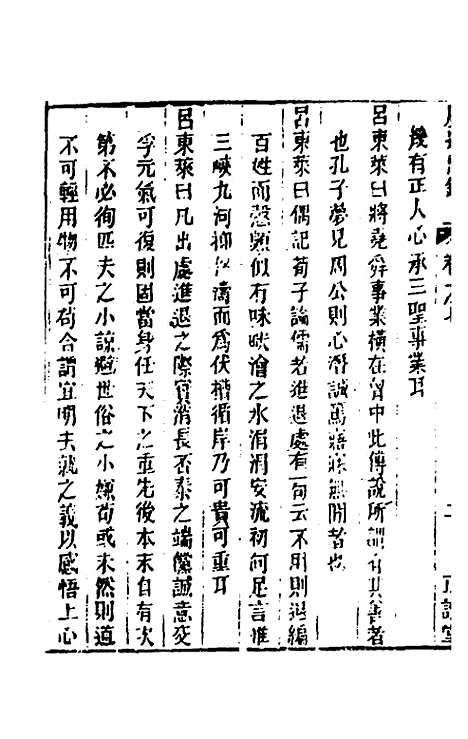 幾有正人心承三聖事業耳
呂東萊曰將堯舜事業橫在胷中此傳說所謂有其善者
也孔子夢見周公則心潛誠篤寤寐無間者也
呂東萊曰偶記荀子論儒者進退處有一句云不用則退編
百姓而慤顋似有味畎澮之水涓涓安流初何足言惟
三峽九河抑怒濤而爲伏槽循岸乃可貴可重耳
呂東萊曰凡出處進退之際實消長否泰之端儻誠意交
孚元氣可復則固當身任天下之重先後本末自有次
第不必徇匹夫之小諒避世俗之小嫌苟或未然則道
不可輕用物不可苟合謂宜明夫就之義以感悟上心